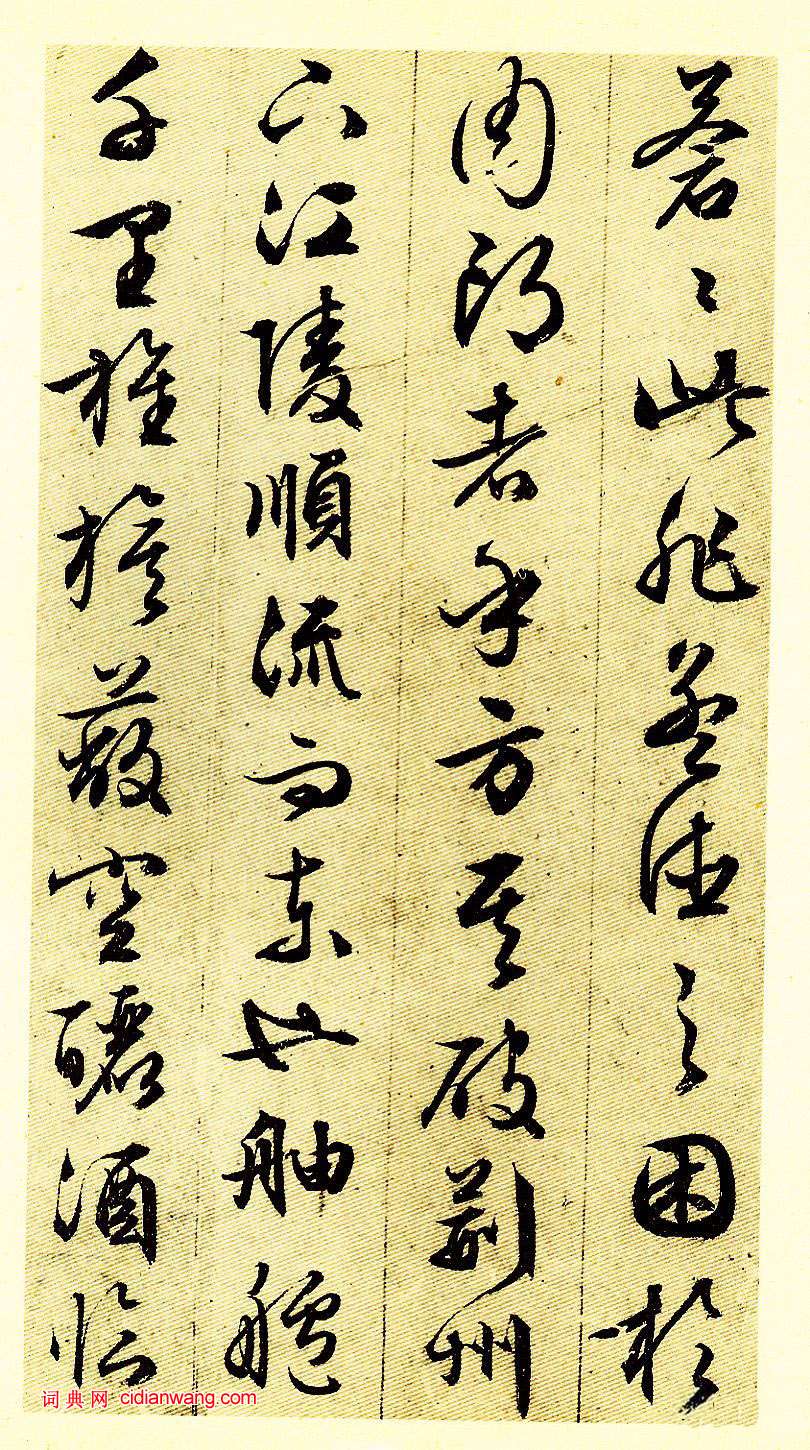 蒼〻此非孟德之困於
周郎者乎方其破荆州
下江陵順流而東也舳艫
千里旌旗蔽空釃酒臨
词典网 cidianwang.com